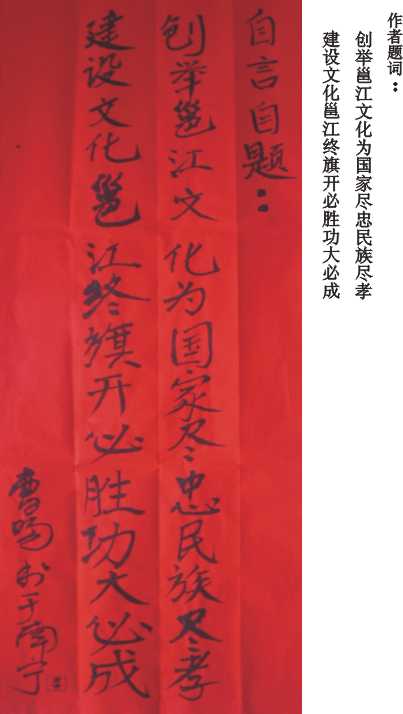 作者题词：
创举邕江文化为国家尽忠民族尽孝
建设文化邕江终旗开必胜功大必成
自言自题：
创举邕江文化为国家尽忠民族尽孝
建设文化邕江终旗开必胜功大必成
于南宁